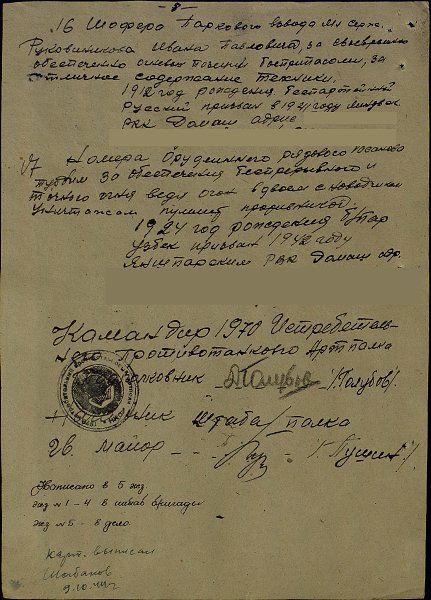 - 8 -
16 Шофера Паркового взвода мл серж.
Руковишникова Ивана Павловича, за своевременно
обеспечению огневых позиций боеприпасами, за
отличное содержание техники.
1912 год рождения беспартейный
Русский призван в 1941 году
РВК Домаш адрес
17 Номера Орудийного рядового
за обеспечения бесперебойного и
точного огня ведя огонь вдвоем с наводчиком
уничтожил пулемет противника.
1924 год рождения б/пар
Узбек призван 1942 году
РВК Домаш адр.
Командир 1970 Истребитель-
ного Противотанкового Артполка
Полковник /Голубов/
Начальник Штаба полка
Гв. майор
Написано в 5 экз.
экз №1-4 в штаб бригады
экз №5 - в дело
карт. выписал
Шабанов
9.10.44г